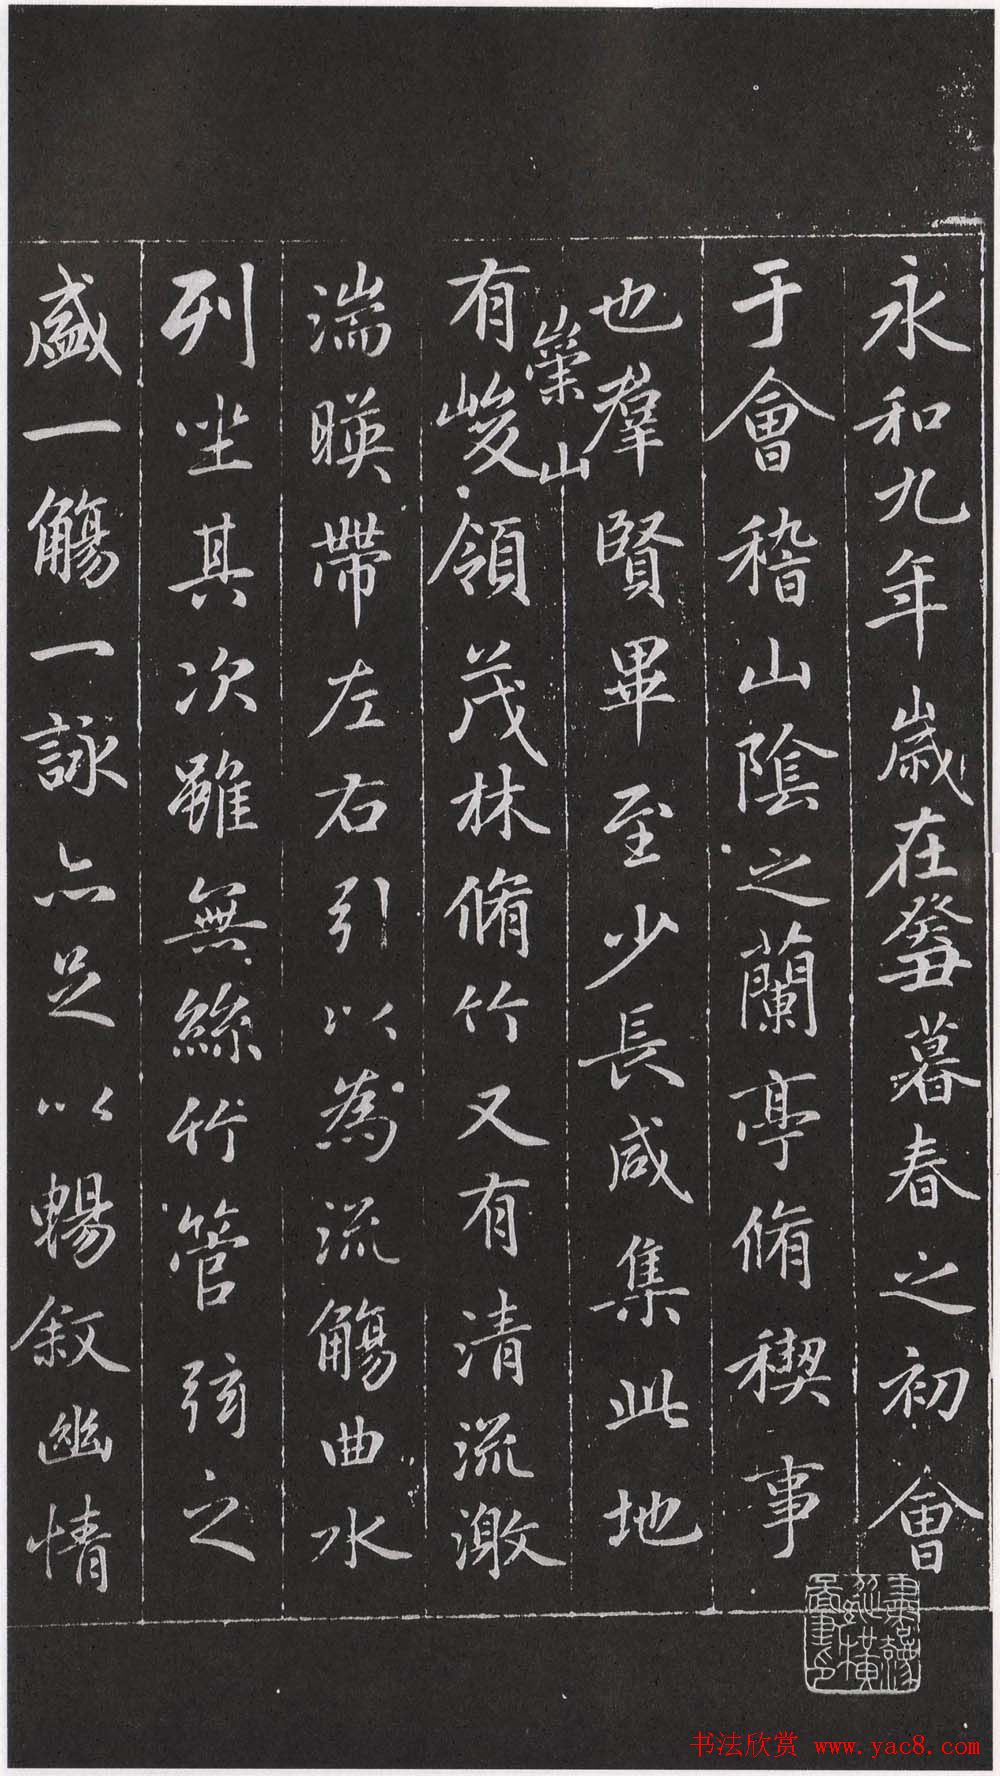 永和九年歲在癸丑暮春之初會
于會稽山陰之蘭亭脩稧事
也羣賢畢至少長咸集此地
崇山
有峻領茂林脩竹又有清流激
湍暎帶左右引以為流觴曲水
列坐其次雖無絲竹管弦之
盛一觴一詠亦足以暢敘幽情
书法欣赏 www.yac8.com